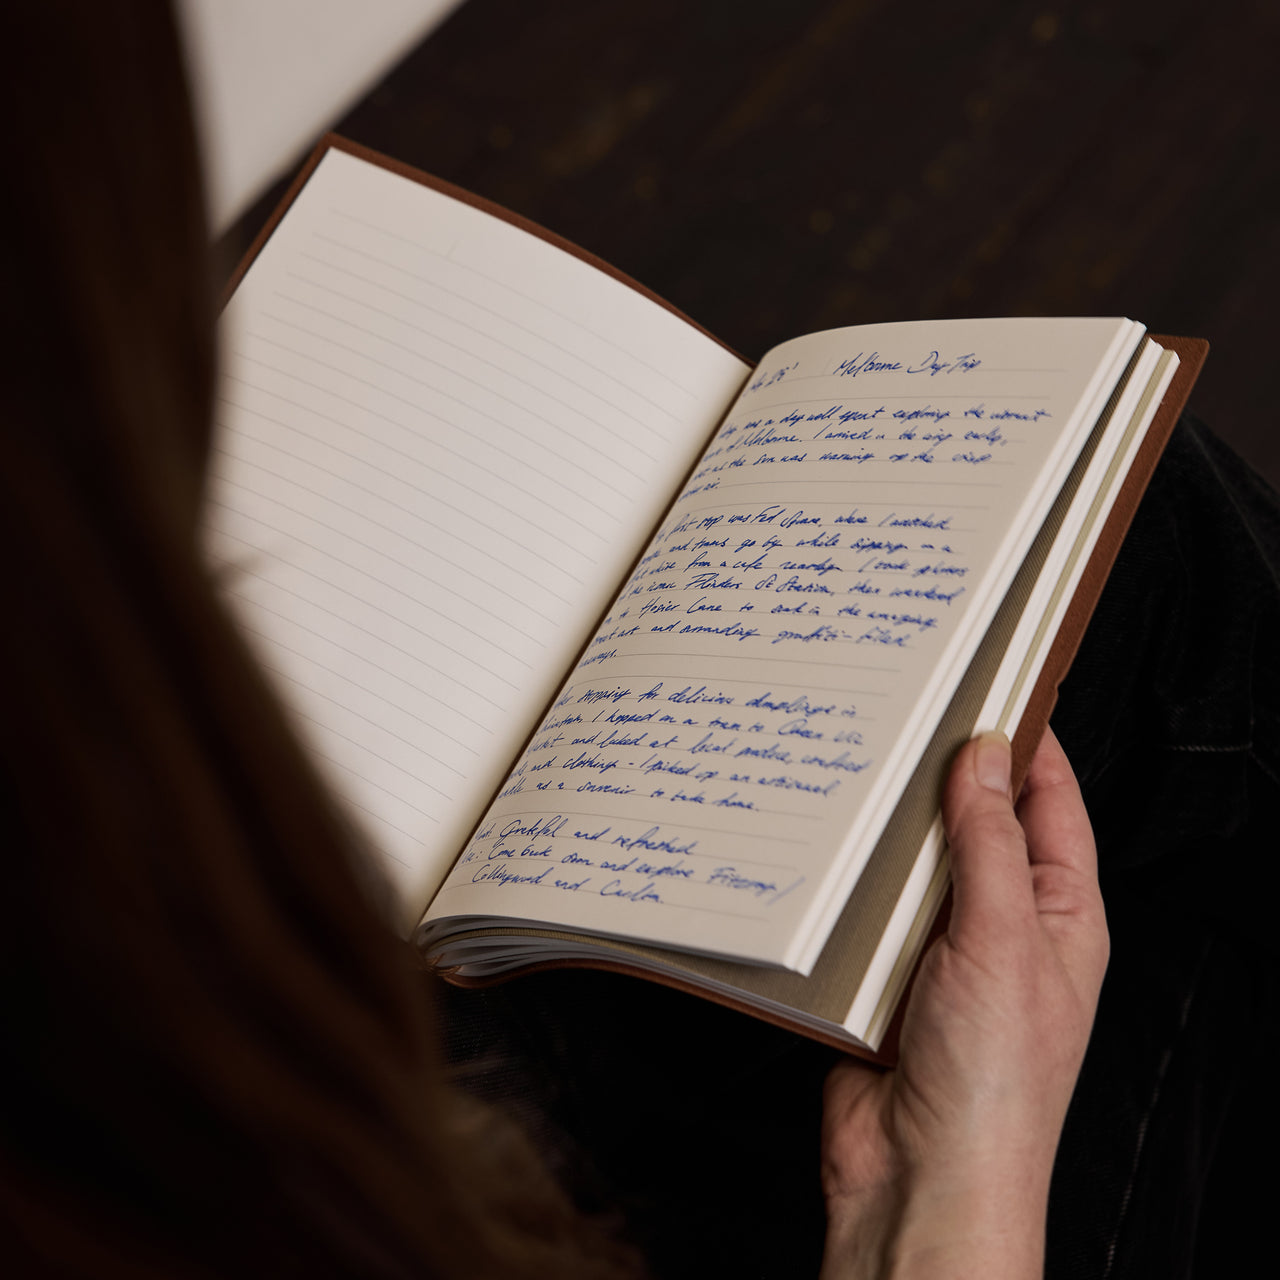 Melbourne Day Trip
was a day well spent exploring the vibrant
of Melbourne. I arrived in the city early,
as the sun was warming up the crisp
air.
first stop was Fed Square, where I watched
and trams go by while sipping on a
flat white from a cafe nearby. I took pictures
of the iconic Flinders St Station, then wandered
to Hosier Lane to soak in the amazing
street art and surrounding graffiti-filled
laneways.
stopping for delicious dumplings in
Chinatown, I hopped on a tram to Queen Vic
Market and looked at local produce,
and clothing - I picked up an artisanal
candle as a souvenir to take home.
Grateful and refreshed
Come back soon and explore Fitzroy/
Collingwood and Carlton.